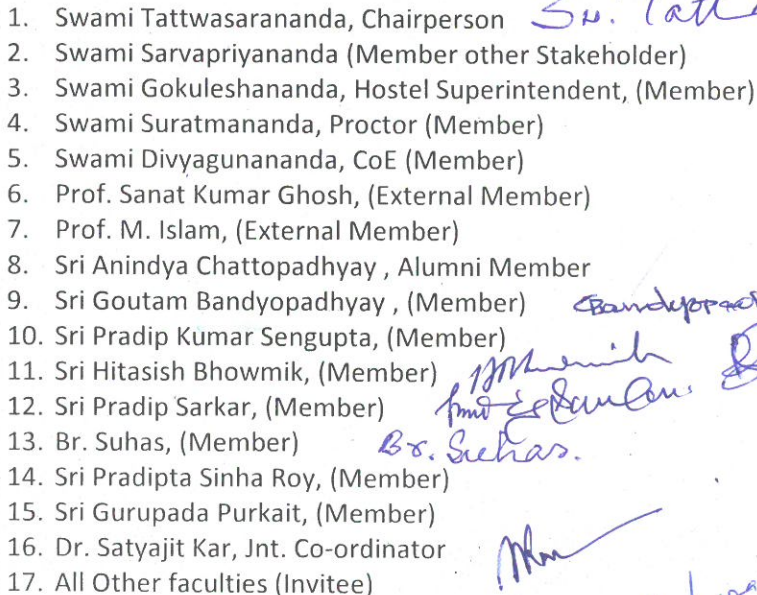 1. Swami Tattwasarananda, Chairperson
2. Swami Sarvapriyananda (Member other Stakeholder)
3. Swami Gokuleshananda, Hostel Superintendent, (Member)
4. Swami Suratmananda, Proctor (Member)
5. Swami Divyagunananda, CoE (Member)
6. Prof. Sanat Kumar Ghosh, (External Member)
7. Prof. M. Islam, (External Member)
8. Sri Anindya Chattopadhyay , Alumni Member
9. Sri Goutam Bandyopadhyay , (Member)
10. Sri Pradip Kumar Sengupta, (Member)
11. Sri Hitasish Bhowmik, (Member)
12. Sri Pradip Sarkar, (Member)
13. Br. Suhas, (Member) Br. Suhas.
14. Sri Pradipta Sinha Roy, (Member)
15. Sri Gurupada Purkait, (Member)
16. Dr. Satyajit Kar, Jnt. Co-ordinator
17. All Other faculties (Invitee)